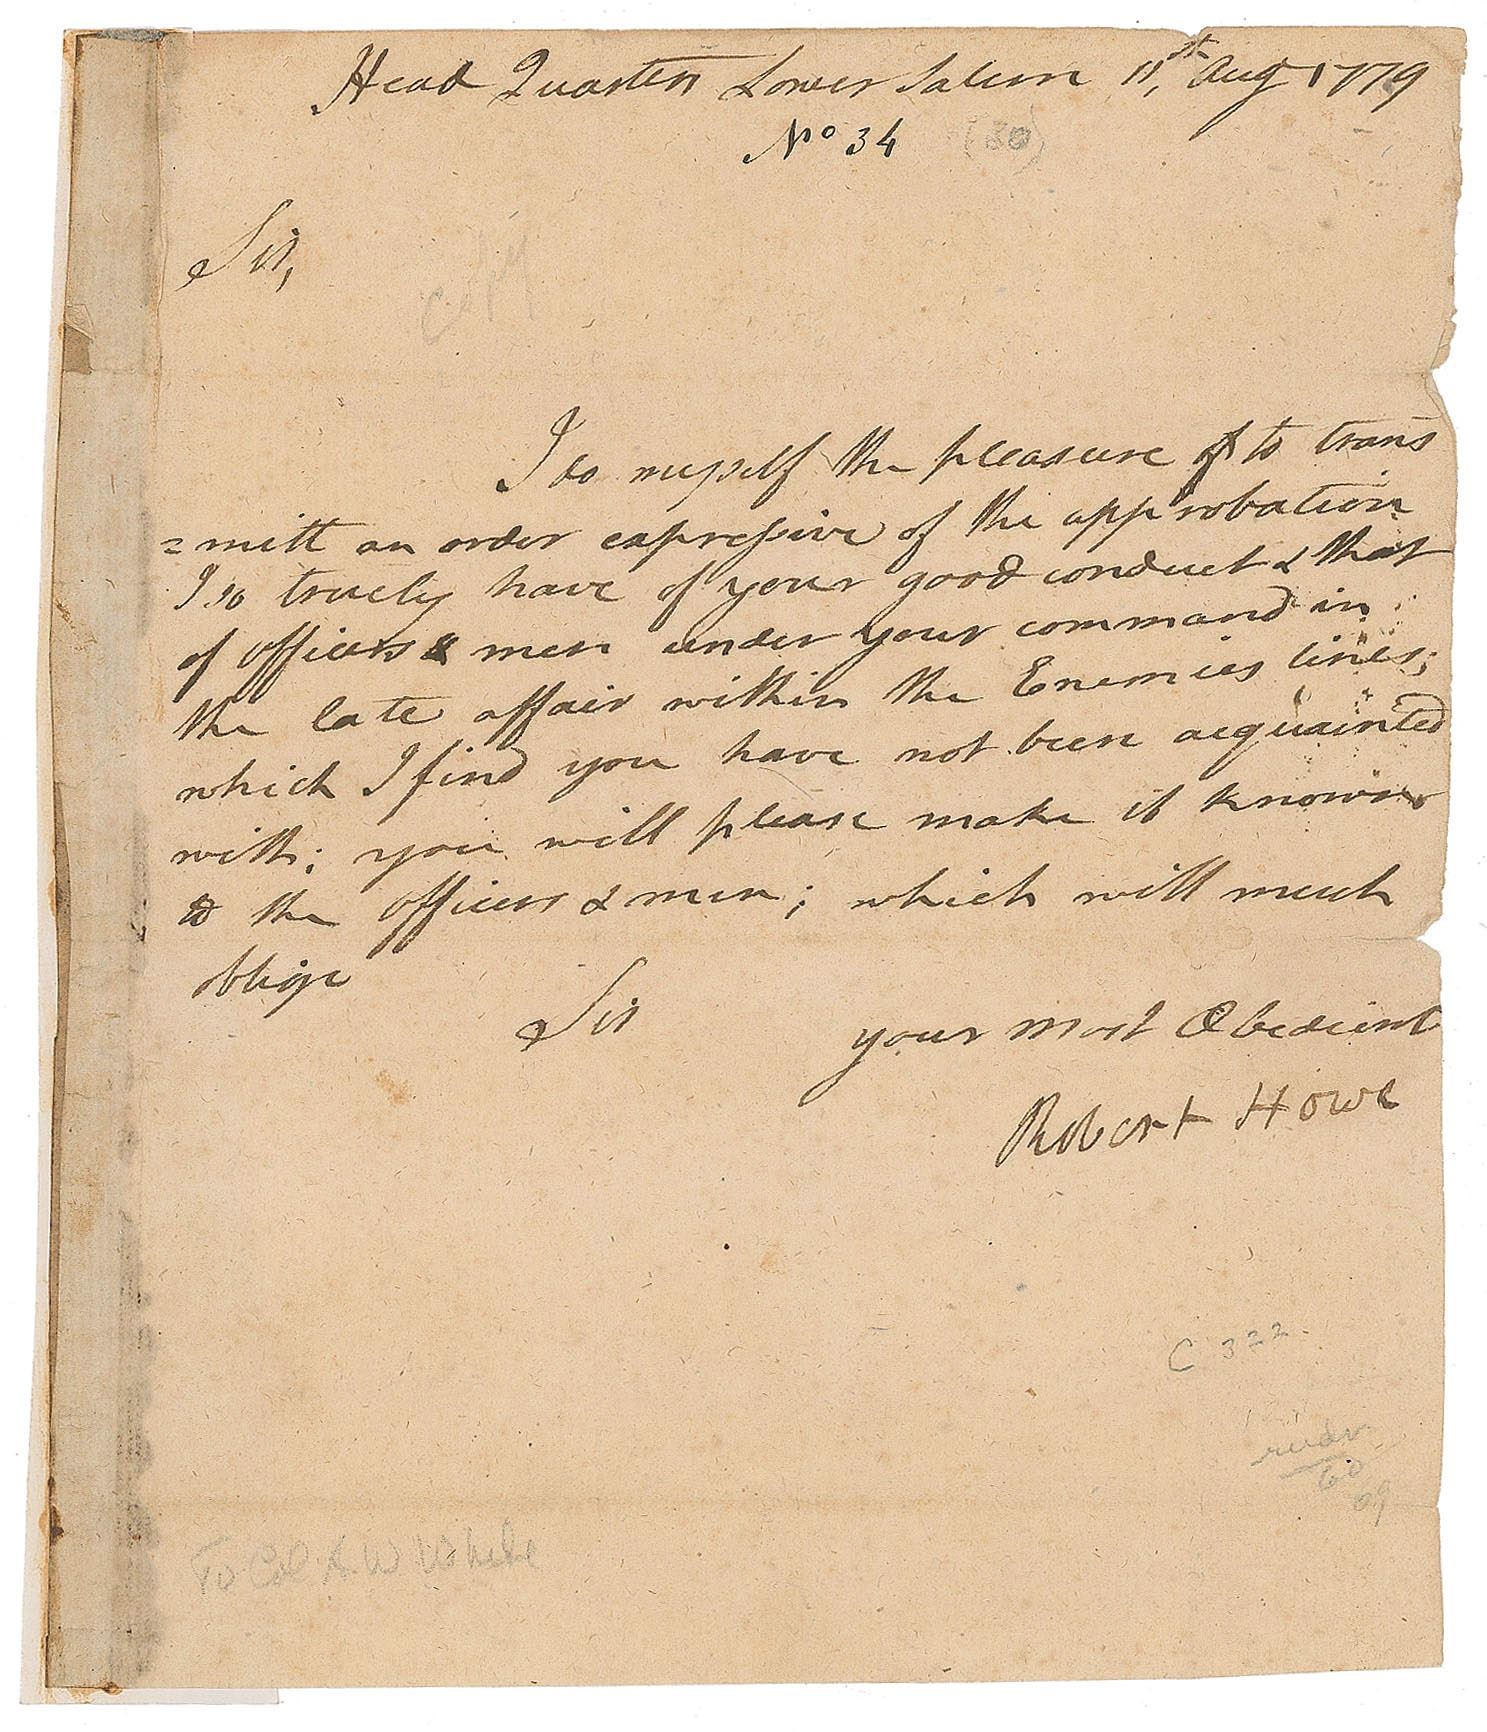 Head Quarters Lower Salem 11th, Aug 1779
No 34 (30)
Sir,
Copy
I do myself the pleasure of to trans
=mitt an order expressive of the approbation
I so truely have of your good conduct & that
of officers & men under your command in
the late affair within the Enemies lines;
which I find you have not been acquainted
with; you will please make it known
to the officers & men; which will much
oblige
Sir
your most Obedient
Robert Howe
C 322
60
09
To Col A. W White